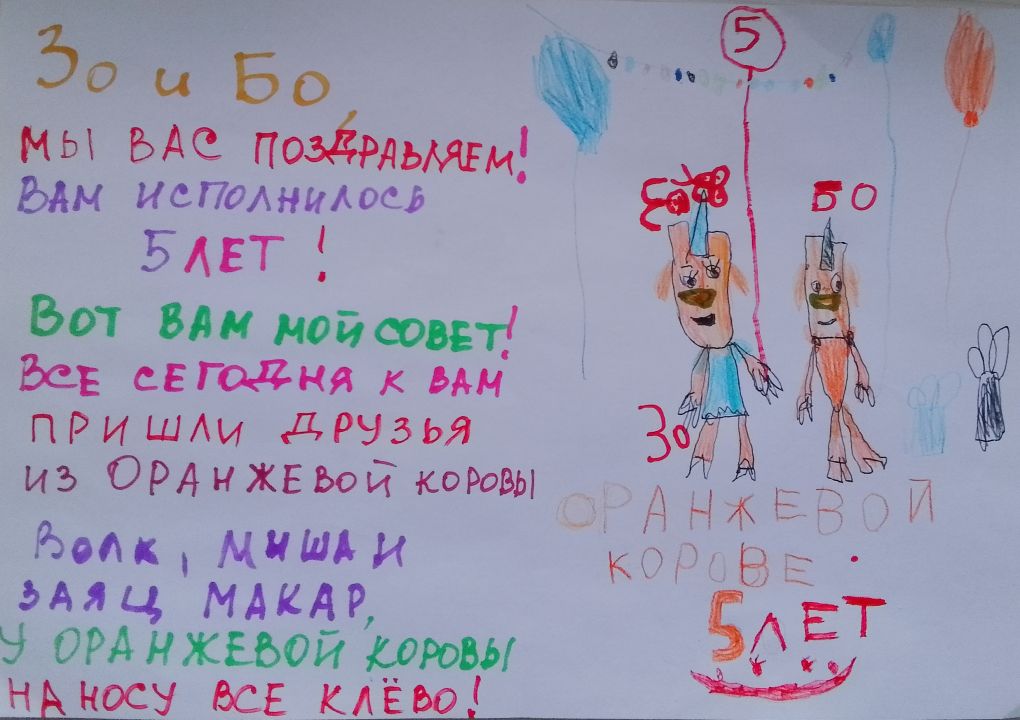 Зо и Бо,
МЫ ВАС ПОЗДРАВЛЯЕМ!
ВАМ ИСПОЛНИЛОСЬ
5 ЛЕТ!
ВОТ ВАМ МОЙ СОВЕТ!
ВСЕ СЕГОДНЯ К ВАМ
ПРИШЛИ ДРУЗЬЯ
ИЗ ОРАНЖЕВОЙ КОРОВЫ
ВОЛК, МИША И
ЗАЯЦ МАКАР,
У ОРАНЖЕВОЙ КОРОВЫ
НА НОСУ ВСЕ КЛЁВО!
5
БО
Зо
ОРАНЖЕВОЙ
КОРОВЕ.
5 ЛЕТ